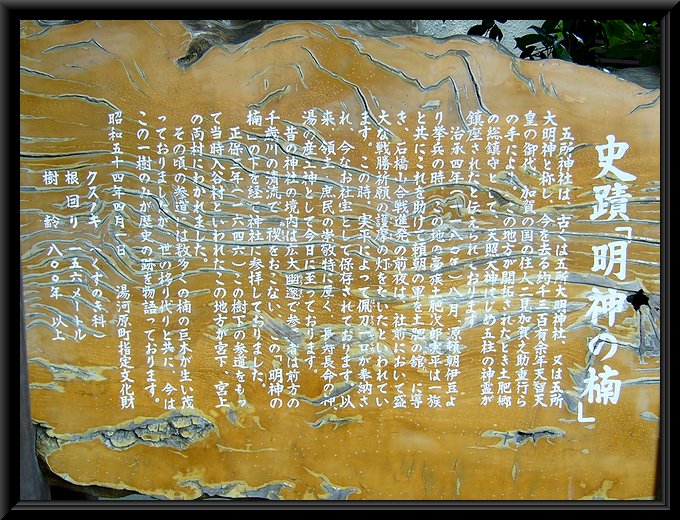 史蹟「明神の楠」
五所神社は、古くは五所大明神社、又は五所
大明神と称し、今を去る約千三百有余年天智天
皇の御代、加賀の国の住人二見加賀之助重行ら
の手によって、この地方が開拓されたとき土肥郷
の総鎮守として、天照大神はじめ五柱の神霊が
鎮座されたと伝えられております。
治承四年(一一八〇年)八月、源頼朝伊豆よ
り挙兵の時、この地の豪族土肥次郎実平は一族
と共にこれを助けて頼朝の軍を土肥の館に導
き、石橋山合戦進発の前夜は、社前において盛
大な戦勝祈願の護摩の灯をたいたといわれてい
ます。この時、実平によって佩刀一口が奉納さ
れ、今なお社宝として保存されております。以
来、領主、庶民の崇敬特に厚く、長寿長命の神
湯の産土神として今日に至っております。
昔の神社の境内は広大幽邃で参拝者は前方の
千歳川の清流で禊をおこない、この「明神の
楠」の下を経て神社に参拝しておりました。
正保二年(一六四五)この樹下の参道をもっ
て当時入谷村といわれたこの地方が宮下、宮上
の両村にわかれました。
その頃の参道には数多くの楠の巨木が生い茂
っておりましたが、世の移り代りと共に、今は
この一樹のみが歴史の跡を物語っております。
昭和五十四年四月一日 湯河原町指定文化財
クスノキ(くすのき科)
根回り 一五・六メートル
樹齢 八〇〇年以上